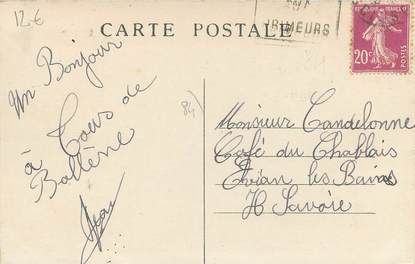 12€
CARTE POSTALE
PRIMEURS
20c
Un Bonjour
à Tous de
Bollène
84)
Monsieur Candelonne
Café du Chablais
Evian les Bains
H Savoie